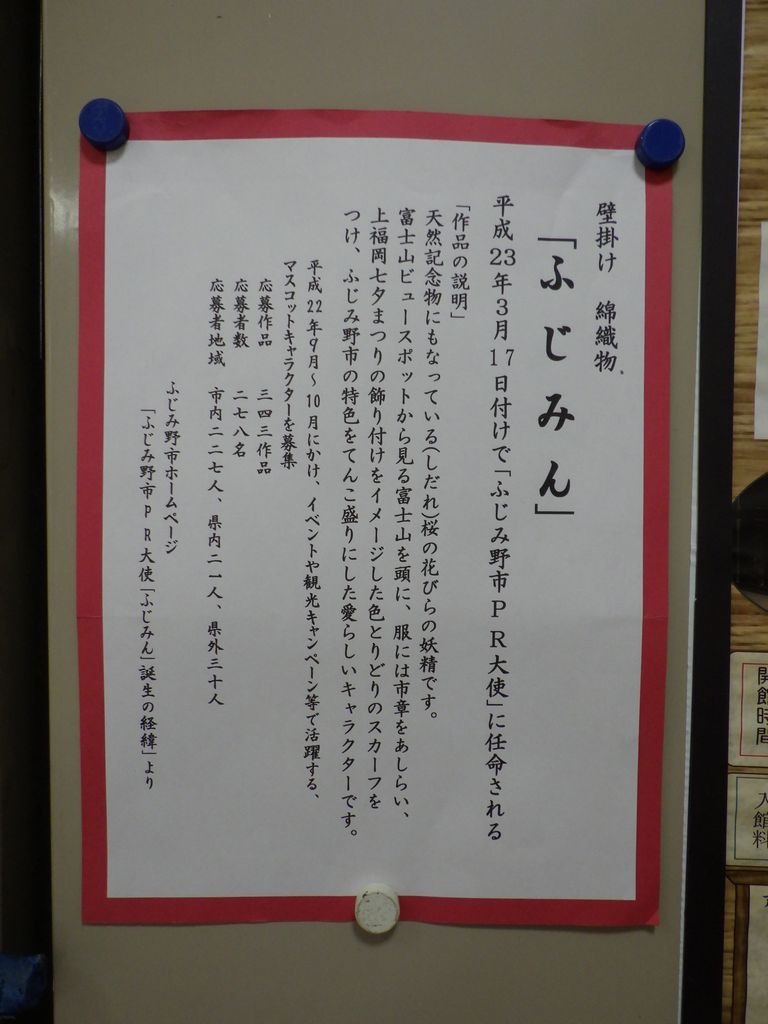 壁掛け　綿織物
「ふじみん」
平成23年3月17日付けで「ふじみ野市PR大使」に任命される
「作品の説明」
天然記念物にもなっている(しだれ)桜の花びらの妖精です。
富士山ビュースポットから見る富士山を頭に、服には市章をあしらい、
上福岡七夕まつりの飾り付けをイメージした色とりどりのスカーフを
つけ、ふじみ野市の特色をてんこ盛りにした愛らしいキャラクターです。
平成22年9月～10月にかけ、イベントや観光キャンペーン等で活躍する、
マスコットキャラクターを募集
応募作品　三四三作品
応募者数　二七八名
応募者地域　市内二二七人、県内二一人、県外三十人
ふじみ野市ホームページ
「ふじみ野市PR大使「ふじみん」誕生の経緯」より
開館時間
入館料